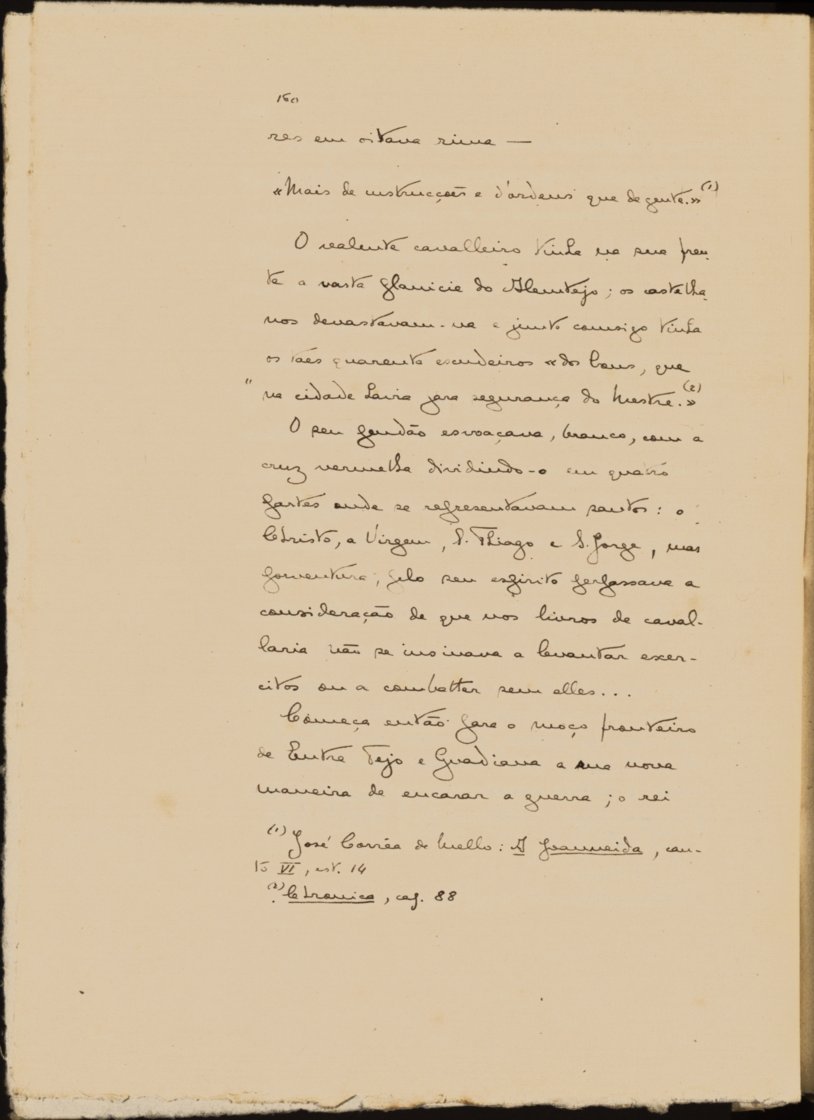 160
res em oitava rima —
«Mais de instrucções e d'ordens que de gente.» (1)
O valente cavalleiro tinha na sua fren-
te a vasta planicie do Alemtejo; os castelha-
nos devastavam-na e junto comsigo tinha
os táes quarenta escudeiros «dos bons, que
" na cidade havia para segurança do Mestre.» (2)
O seu pendão esvoaçava, branco, com a
cruz vermelha dividindo-o em quatro
partes onde se representavam santos: o
Christo, a Virgem, S. Thiago e S. Jorge, mas
porventura, pelo seu espirito perpassava a
consideração de que nos livros de caval-
laria não se insinava a levantar exer-
citos ou a combatter sem elles...
Começa então para o moço fronteiro
de Entre Tejo e Guadiana a sua nova
maneira de encarar a guerra; o rei
(1) José Corrêa de Mello: A Joanneida, can-
to VI, est. 14
(2) Chronica, cap. 88